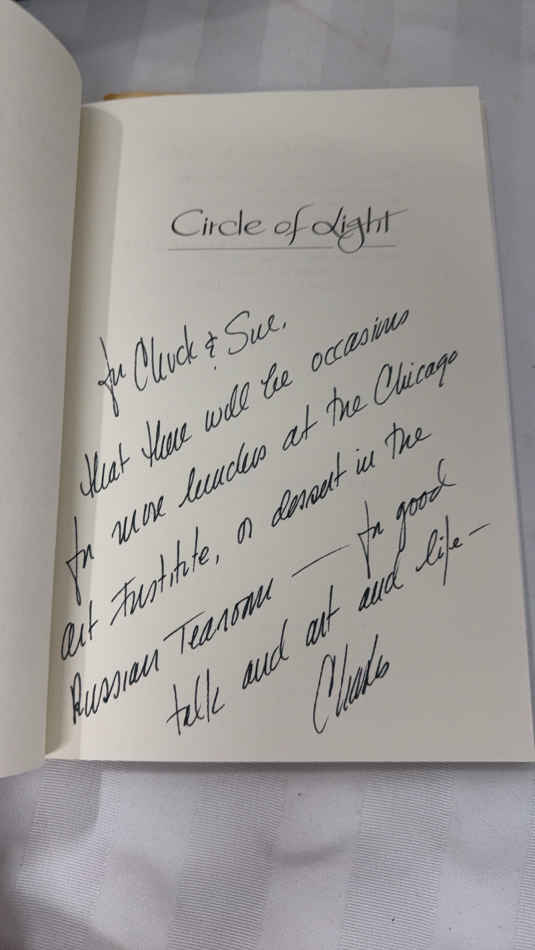 Circle of Light
for Chuck & Sue.
that there will be occasions
for more lunches at the Chicago
art Institute, or dessert in the
Russian Tearoom — for good
talk and art and life —
Charles